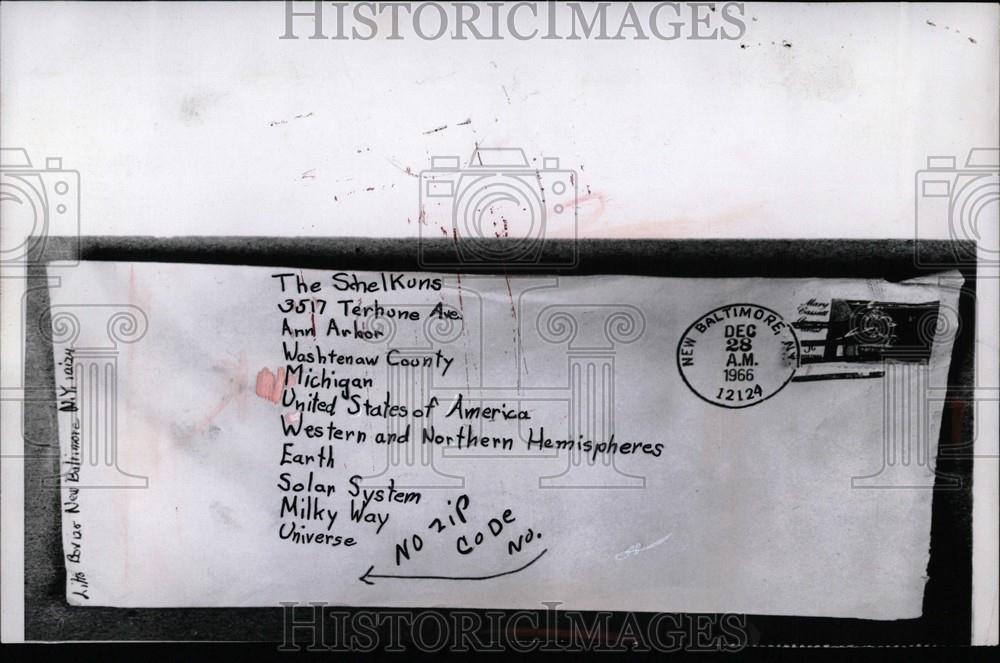 HISTORICIMAGES
The Schelkuns
3517 Terhune Ave.
Ann Arbor
Washtenaw County
Michigan
United States of America
Western and Northern Hemispheres
Earth
Solar System
Milky Way
Universe
NO ZIP
CODE
NO.
NEW BALTIMORE, NY
DEC
28
A.M.
1966
12124
Mary
Cassatt
5c
Box 120 New Baltimore N.Y. 12124
HISTORICIMAGES